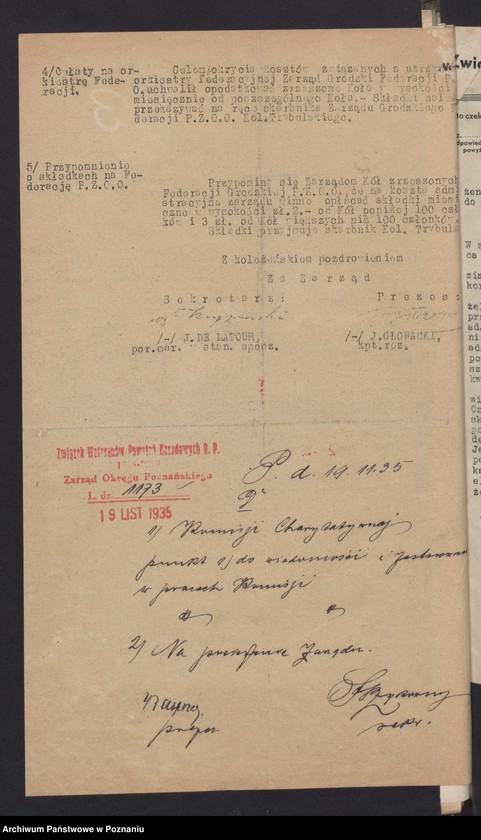 4/Opłaty na or-
kiestrę Fede-
racji.
Celem pokrycia kosztów związanych z utrzym
orkiestry federacyjnej Zarząd Grodzki Federacji P.
O. uchwalił opodatkować zrzeszone Koła w wysokości
miesięcznie od poszczególnego Koła.- Składki nale
przekazywać na ręce skarbnika Zarządu Grodzkiego
deracji P.Z.O.O. Kol. Trybulskiego.
5/ Przypomnienie
o składkach na Fe-
derację P.Z.O.O.
Przypomina się Zarządom Kół zrzeszonych
Federacji Grodzkiej P.Z.O.O., że na koszta adm
stracyjne zarządu winno opłacać składki miesi
czne w wysokości zł.2.- od Kół poniżej 100 czł
ków i 3 zł. od Kół większych niż 100 członków.
Składki przyjmuje skarbnik Kol. Trybuls
Z koleżeńskiem pozdrowieniem
Za Zarząd
Sekretarz: Prezes:
/-/ J. DE LATOUR, /-/ J.GŁOWACKI,
por.mar. stan. spocz. kpt.rez.
Związek Weteranów Powstań Narodowych R. P.
Zarząd Okręgu Poznańskiego
L. dz. 1173
19 LIST 1935
P. d. 19.11.35
1) Komisji Charytatywnej
punkt 1) do wiadomości i zastosowa
w pracach Komisji
2) Na posiedzenie Zarządu.
sekr.
Archiwum Państwowe w Poznaniu